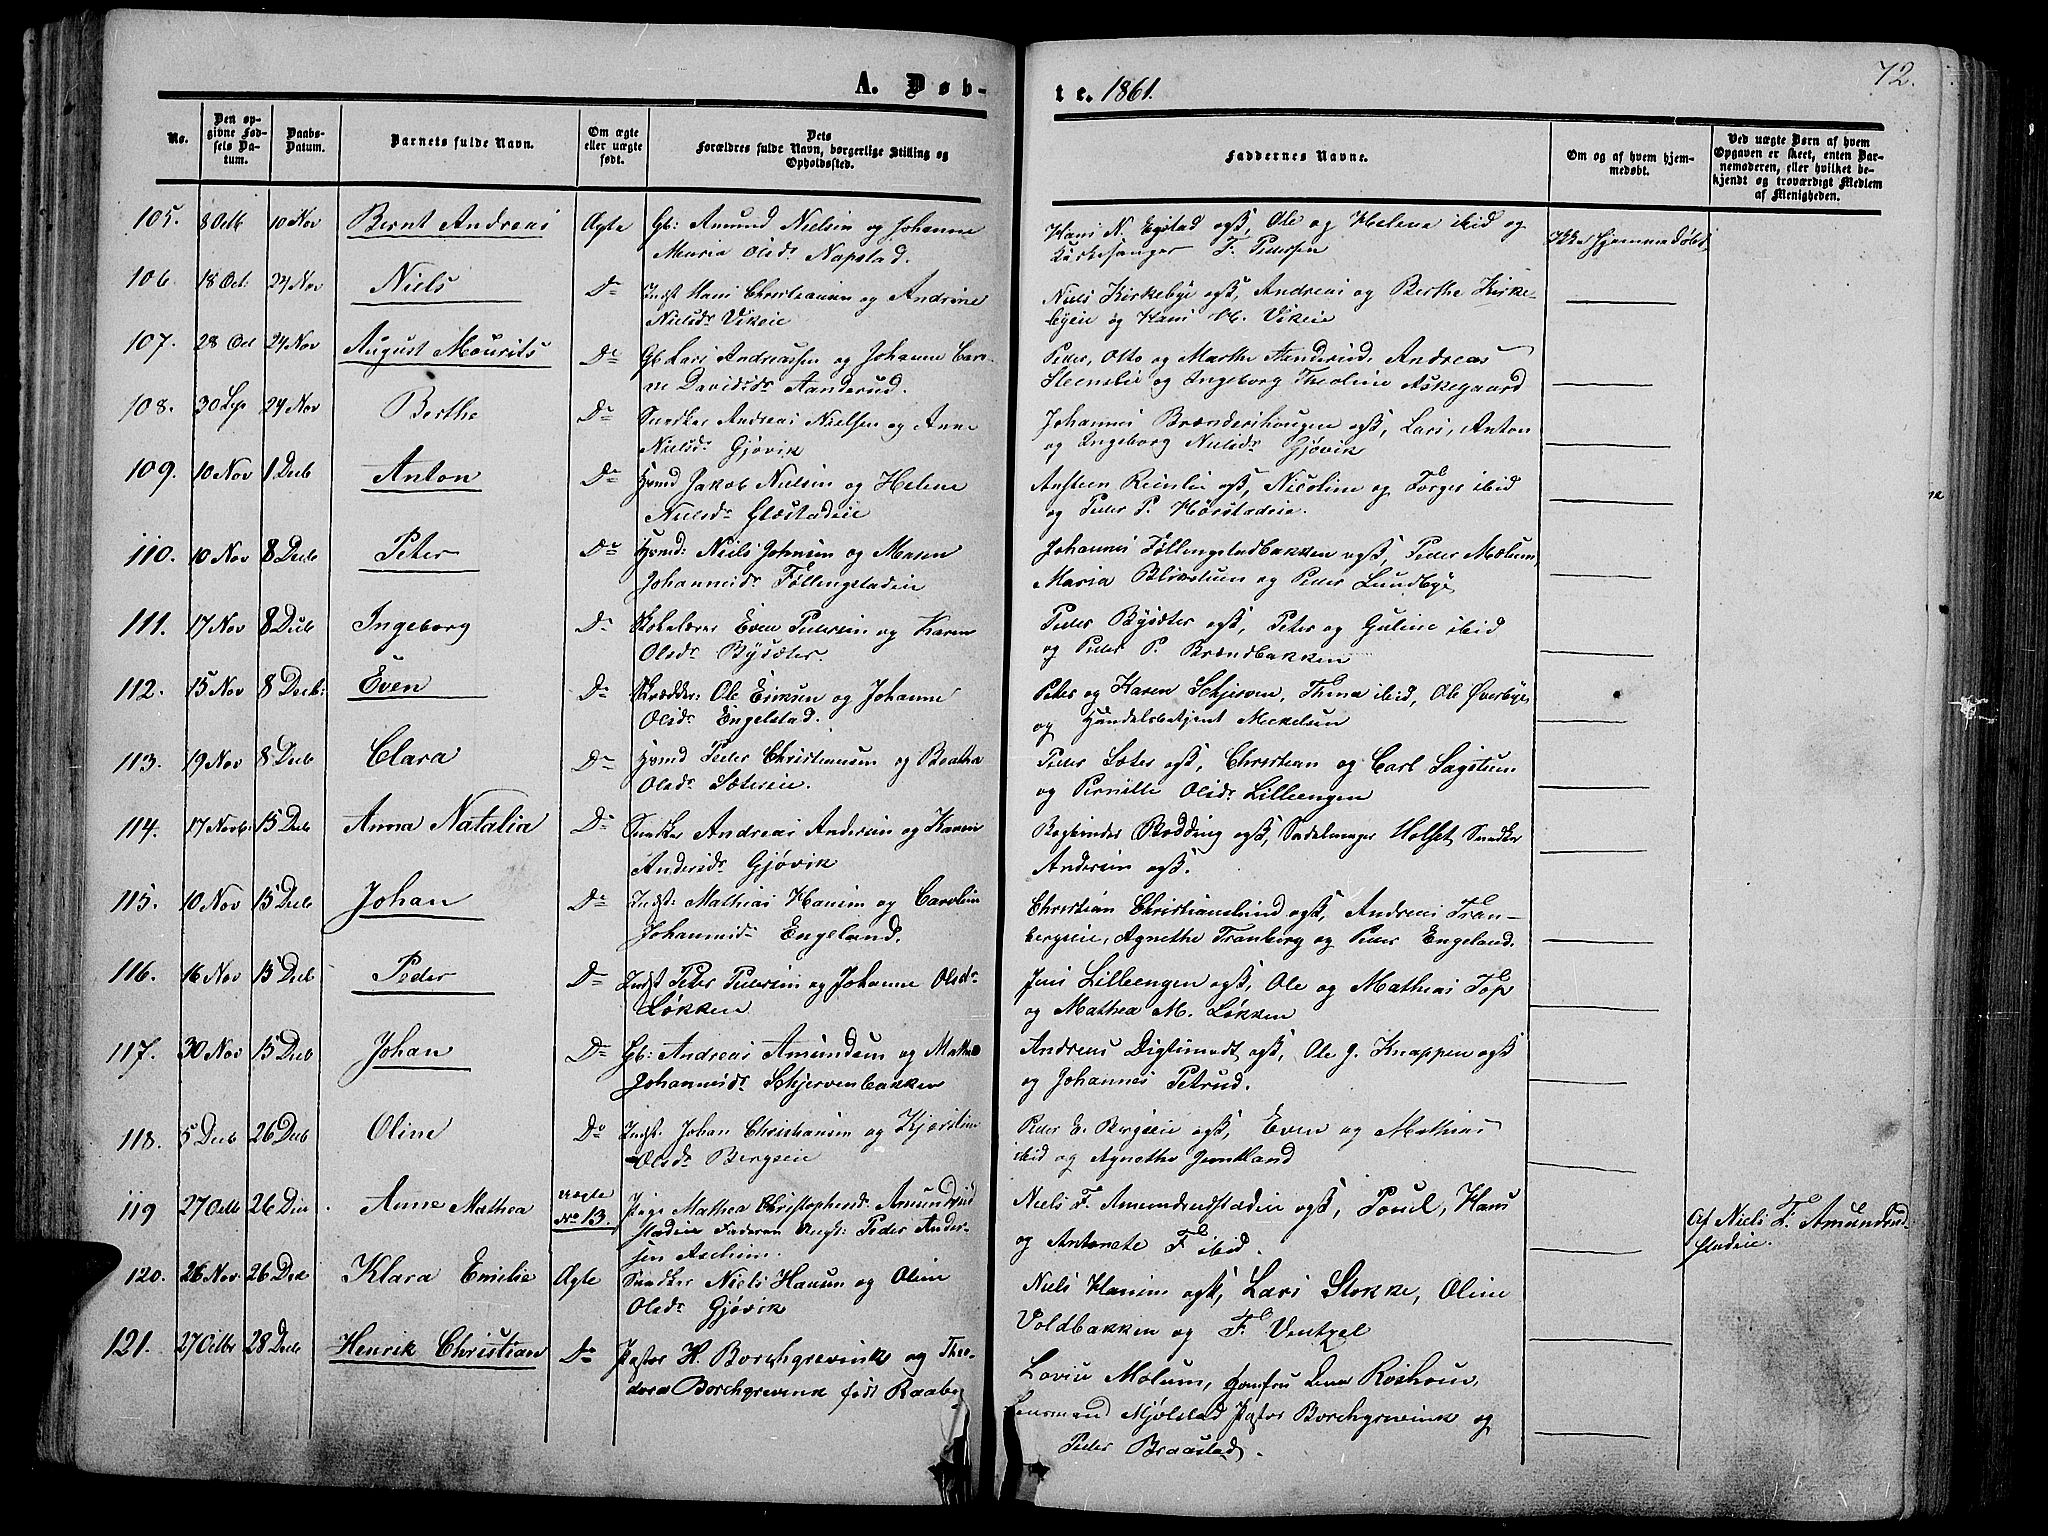 A. Døb-
te. 1861.
72.
No.
Den op-
givne Fød-
sels Da-
tum.
Daabs-
Datum.
Barnets fulde Navn.
Om ægte
eller uægte
født.
Dets
Forældres fulde Navn, borgerlige Stilling og
Opholdssted.
Faddernes Navne.
Om og af hvem hjem-
medøbt.
Ved uægte Børn af hvem
Opgaven er skeet, enten Bar-
nemoderen, eller hvilket be-
kjendt og troværdigt Medlem
af Menigheden.
105. 8 Octb 10 Nov Bernt Andreas Ægte Gb: Amund Nielsen og Johanne
Maria Olsdr Napstad.
Hans N. Egstad ogß, Ole og Helene ibid og
Kirkesanger F. Pedersen
Ikke hjemmedøbt
106. 18 Oct: 24 Nov Niels Do Indst Hans Christiansen og Andrine
Nielsdr Vikeie
Niels Kirkebye ogß, Andreas og Berthe Kirke-
byeie og Hans H. Vikeie
107. 28 Oct 24 Nov August Mourits Do Gb Lars Andreassen og Johanne Car-
ne Davidsdr Aanderud.
Peder, Otto og Marthe Aanderud, Andreas
Steenslie og Ingeborg Theoline Askegaard
108. 30 Sep 24 Nov Berthe Do Snedker Andreas Nielsen og Anne
Nielsdr Gjøvik
Johannes Brændershougen ogß, Lars, Anton
og Ingeborg Nielsdr Gjøvik
109. 10 Nov 1 Decb Anton Do Hsmd Jakob Nielsen og Helene
Nielsdr Glæstadeie
Ansteen Reinlie ogß, Nicoline og Torger ibid
og Peder P. Hørstadeie.
110. 10 Nov 8 Decb Peter Do Hsmd: Niels Johnsen og Maren
Johannesdr Føllingstadeie
Johannes Føllengstadbakken ogß, Peder Mælum,
Maria Blixelum og Peder Lundbye
111. 17 Nov 8 Decb Ingeborg Do Skolelærer Even Pedersen og Karen
Olsdr Bysæter.
Peder Bysæter ogß, Peter og Guline ibid
og Peder P. Brændbakken
112. 15 Nov 8 Decb: Even Do Skrædder: Ole Eriksen og Johanne
Olsdr Engelstad.
Peter og Karen Schjerven, Thina ibid, Ole Øverbye
og Handelsbetjent Mickelsen
113. 19 Nov 8 Decb Clara Do Hsmd Peder Christiansen og Beatha
Olsdr Sætereie.
Peder Sæter ogß, Christian og Carl Sagstuen
og Pernille Olsdr Lilleengen
114. 17 Novb: 15 Decb Anna Natalia Do Snedker Andreas Andersen og Karen
Andersdr Gjøvik
Bogbinder Bødding ogß, Sadelmager Holset, Snedker
Andersen ogß.
115. 10 Nov 15 Decb Johan Do Indst: Mathias Hansen og Caroline
Johannesdr Engeland.
Christian Christianslund ogß, Andreas Tran-
bergseie, Agnethe Tranberg og Peder Engeland.
116. 16 Nov 15 Decb Peder Do Indst Peder Pedersen og Johanne Olsdr
Løkken
Jens Lilleengen ogß, Ole og Mathias Top
og Mathea M. Løkken
117. 30 Nov 15 Decb Johan Do Gb: Andreas Amundsen og Mathea
Johannesdr Schjervenbakken
Andreas Digtsmedt ogß, Ole J. Knappen ogß
og Johannes Petrud.
118. 5 Decb 26 Decb Oline Do Indst: Johan Christiansen og Kjerstine
Olsdr Bergseie
Peder E. Bergseie ogß, Even og Mathias
ibid og Agnethe Jemtland
119 27 Octb 26 Dec Anne Mathea uægte
No 13.
Pige Mathea Christophersdr Amundrud
stadeie Faderen Ungk: Peder Ander-
sen Aschim.
Niels F. Amundrudstadeie ogß, Poul, Hans
og Antonete F. ibid.
Af Niels F. Amundrud-
stadeie.
120. 26 Nov 26 Dec Klara Emelie Ægte Snedker Niels Hansen og Oline
Olsdr Gjøvik
Niels Hansen ogß, Lars Stokke, Oline
Voldbakken og F. Ventzel
121. 27 Octbr 28 Decb Henrik Christian Do Pastor H. Borchgrevink og Theo-
dora Borchgrevink født Raabye
Lovise Molum, Jomfru Dina Rosholm,
Lensmand Mjølstad, Pastor Borchgrevink og
Peder Braastad.